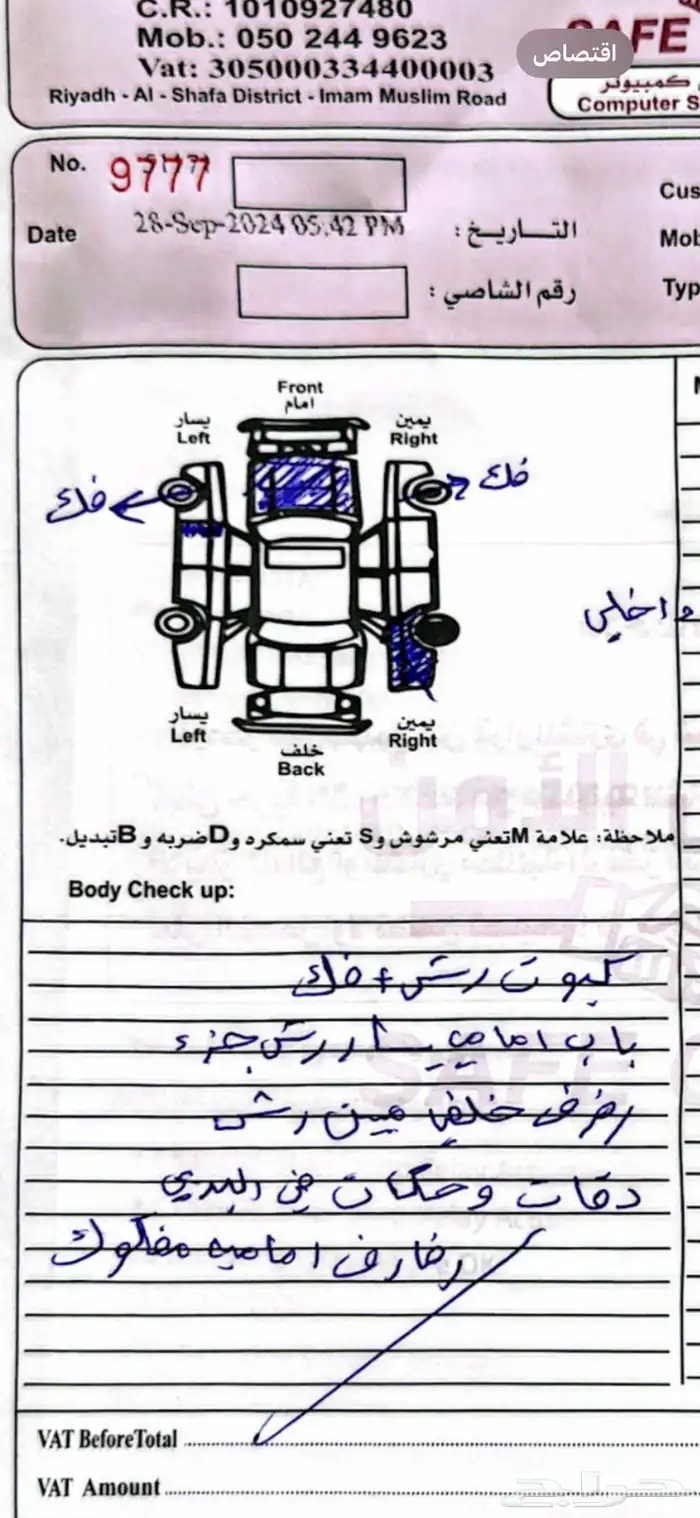 C.R.: 1010927480
Mob.: 050 244 9623
Vat: 305000334400003
Riyadh - Al - Shafa District - Imam Muslim Road
SAFE
اقتصاص
كمبيوتر
Computer S
No. 9777
Cus
Date 28-Sep-2024 05:42 PM التـــاريـــخ :
Mob
رقم الشاصي :
Typ
Front
امام
يسار
Left
يمين
Right
فك
فك
داخلي
يسار
Left
يمين
Right
خلف
Back
ملاحظة: علامة Mتعني مرشوش وS تعني سمكره وDضربه وBتبديل.
Body Check up:
كبوت رش + فك
باب امامي يسار رش جزء
رفرف خلفي يمين رش
دقات وحكات في البدي
رفارف اماميه مفكوك
VAT BeforeTotal
VAT Amount
حراج